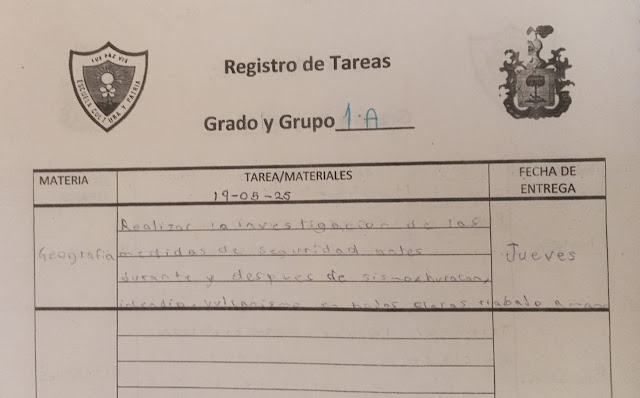 LUX PAX VIS
ESCUELA CULTURA Y PATRIA
Registro de Tareas
Grado y Grupo 1.A
MATERIA
TAREA/MATERIALES
19-05-25
FECHA DE
ENTREGA
Geografia
Realizar la investigacion de las
medidas de seguridad antes
durante y despues de sismo, huracan,
incendio, vulcanismo en hojas trabajo a mano
Jueves